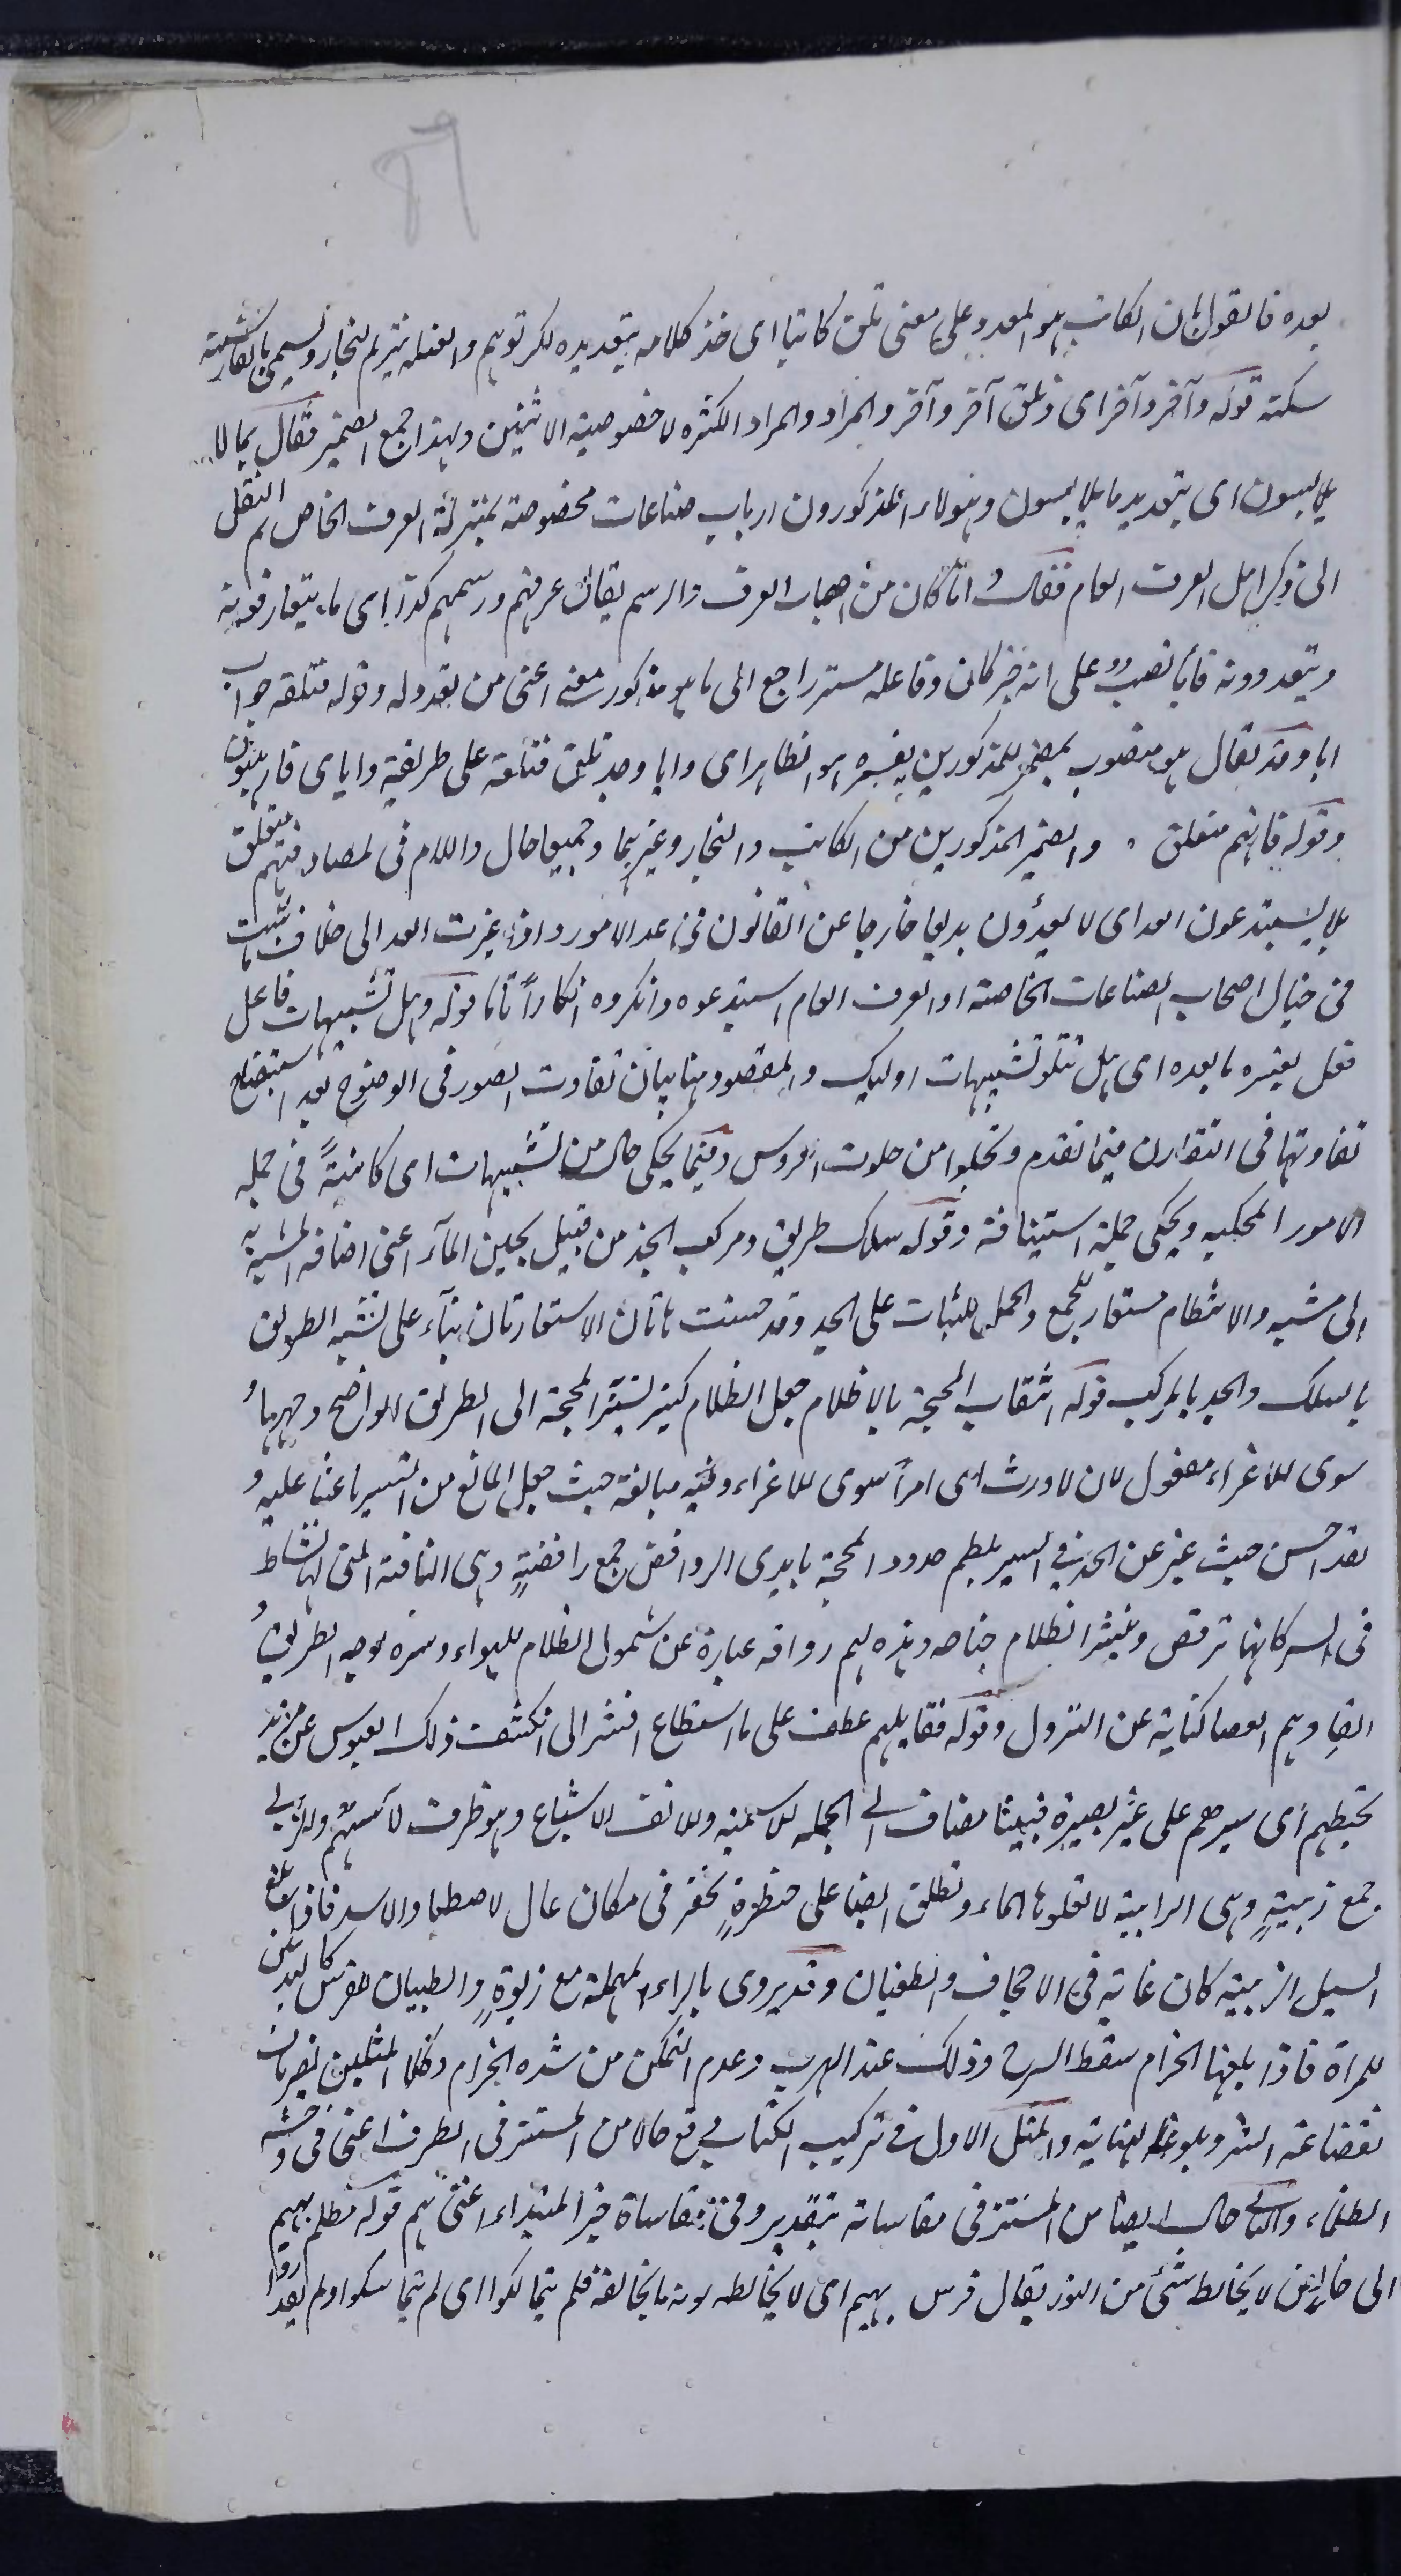 بعده فالقول بان الكاتب هو المعدود على معنى تلق كاتبا اى خذ كلامه بتعديده لكر توهم والفعله نثرلم لنجار ويسمى بالفارسية
سكنه قوله وآخر وآخر اى وتلق آخر وآخر والمراد والمراد الكثره لا خصوصية الاثنين ولهذا جمع الضمير فقال بما لا
يلابسون اى بتعديد ما يلابسون وهؤلاء المذكورون ارباب صناعات مخصوصة بمنزلة العرف الخاص ثم انتقل
الى ذكر اهل العرف العام فقال واياً كان من اصحاب العرف والرسم يقال عرفهم ورسمهم كذا اى ما يتعارفونه
ويتعددونه فاياً نصبٌ على انه خبر كان وفاعله مستتر راجع الى ما هو مذكور معنى اعنى من بعدوله وقوله فتلقه جواب
ايا وقد يقال هو منصوب بمضمر للمذكورين يفسره هو الظاهر اى وايا وجد تلق فتلقه على طريقة واياى فارهبون
وقوله فانهم متعلق والضمير المذكورين من الكاتب والنجار وغيرهما وجميعا حال واللام فى لمصادفتهم متعلق
بلا يستبدعون العد اى لا يعدون بديعا خارجا عن القانون فى عد الامور واذا غيرت العد الى خلاف ما ثبت
فى خيال اصحاب الصناعات الخاصة او العرف العام استبدعوه وانكروه انكاراً تاما قوله وهل تشبيهات فاعل
فعل يفسره ما بعده اى هل تتلو تشبيهات اوليك والمقصود هنا بيان تفاوت الصور فى الوضوح بعد استيضاح
تفاوتها فى التقارن فيما تقدم وتجلوا من جلوت العروس وفيما يحكى حال من تشبيهات اى كائنةً فى جملة
الامور المحكيه ويحكى جملة استينافة وقوله سلك طريق ومركب الجد من قبيل لجين الماء اعنى اضافة المشبه به
الى مشبه والانتظام مستعار للجمع والحمل للثبات على الجد وقد حسنت هاتان الاستعارتان بناء على تشبيه الطريق
بالسلك والجد بالمركب قوله انتقاب المحجة بالاظلام جعل الظلام كستر لستر المحجة اى الطريق الواضح وجهها
سوى للاغراء مفعول لان لا ورث اى امرأ سوى للاغراء وفيه مبالغة حيث جعل المانع من السير باعثا عليه و
لقد احسن حيث عبر عن الجد فى السير بلطم حدود المحجة بايدى الروافض جمع رافضةٍ وهى الناقة التى لها نشاط
فى السر كانها ترقص وينشر الظلام جناحه ويده لهم رواقه عبارة عن شمول الظلام للهواء وستره لوجه الطريق و
القاؤهم العصا كناية عن النزول وقوله فقابلهم عطف على ما استطاع افتنثر الى انكشف ذلك العبوس عن مزيد
تخبطهم اى سيرهم على غير بصيرة فبينا مضاف الى الجمله للاسمية وللالف الاشباع وهو ظرف لانسهم والزبى
جمع زبيةٍ وهى الرابية لا تعلوها الماء وتطلق ايضا على حفظرةٍ تحفر فى مكان عال لاصطياد الاسد فاذا بلغ
السيل الزبية كان غاية فى الاجحاف والطغيان وقد يروى بالراء المهملة مع زبوةٍ والطبيان للفرس كالثديين
للمرأة فاذا بلغها الحزام سقط السرج وذلك عند الهرب وعدم التمكن من شده الحزام وكلا المثلين يضربان
لفظاعة الشر وبلوغه لغايته والمثل الاول فى تركيب الكتاب وقع حالا من المستتر فى الطرف اعنى فى وحشة
الظلماء والثانى حال ايضا من المستتر فى مقاساته بتقدير وفى مقاساة خبر المبتداء اعنى هم قوله مظلم بهيم
الى خالص لا يخالط شئ من النور يقال فرس بهيم اى لا يخالطه لونه ما يخالفه فلم يتمالكوا اى لم يتماسكوا ولم يقدروا